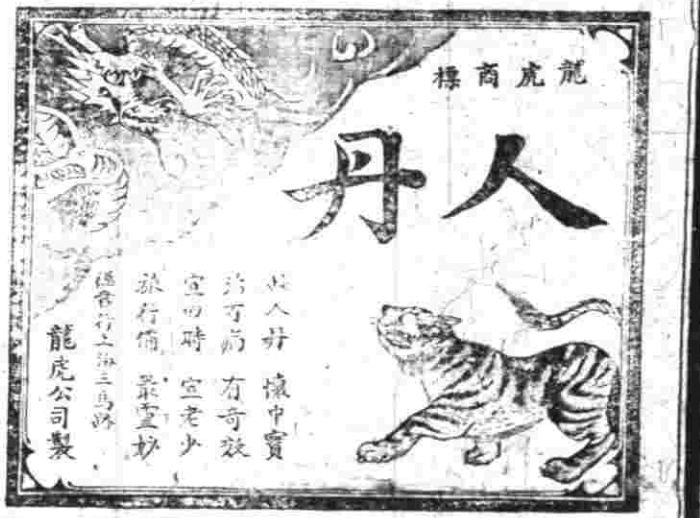 龍虎商標
人丹
人丹 懷中寶
治百病 有奇效
宜四時 宜老少
旅行備 最靈妙
總發行上海三馬路
龍虎公司製